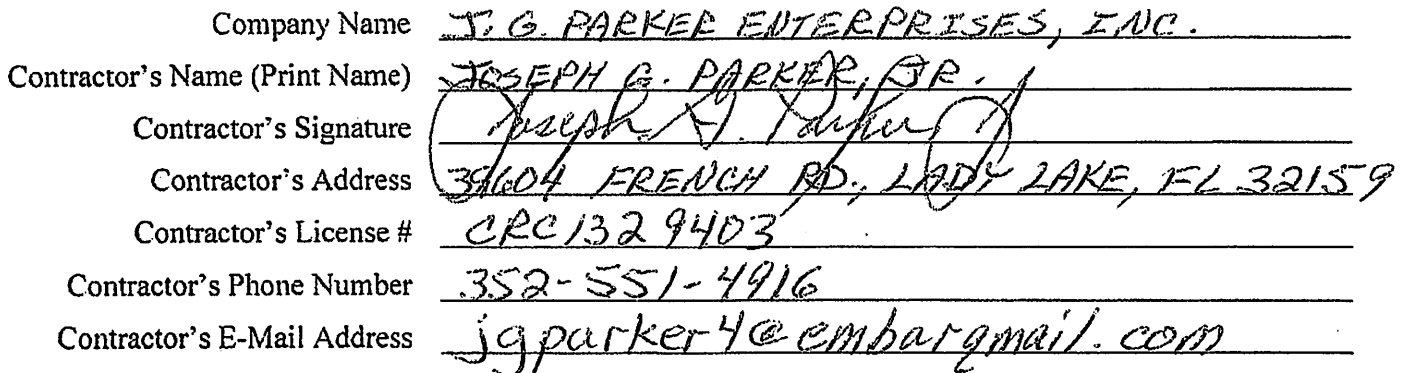 Company Name J. G. PARKER ENTERPRISES, INC.
Contractor's Name (Print Name) JOSEPH G. PARKER, JR.
Contractor's Signature Joseph G. Parker, Jr
Contractor's Address FRENCH RD., LADY LAKE, FL 32159
Contractor's License # CRC1329403
Contractor's Phone Number 352-551-4916
Contractor's E-Mail Address jgparker4@embarqmail.com